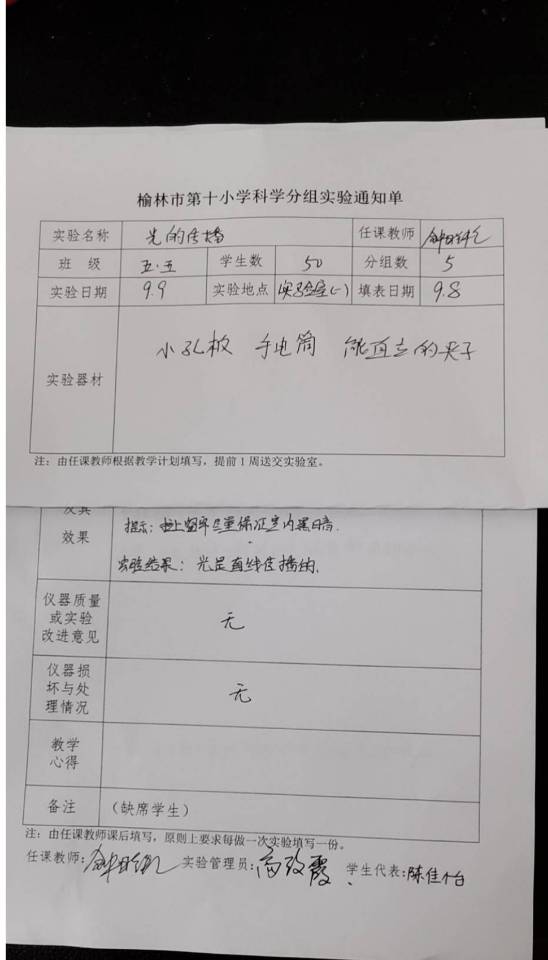 榆林市第十小学科学分组实验通知单
实验名称 光的传播 任课教师
班 级 五·五 学生数 50 分组数 5
实验日期 9.9 实验地点 实验室(一) 填表日期 9.8
实验器材 小孔板 手电筒 能直立的夹子
注：由任课教师根据教学计划填写，提前1周送交实验室。
及其
效果
提示: 尽量保证室内黑暗.
实验结果: 光是直线传播的.
仪器质量
或实验
改进意见
无
仪器损
坏与处
理情况
无
教学
心得
备注 （缺席学生）
注：由任课教师课后填写，原则上要求每做一次实验填写一份。
任课教师: 实验管理员:高改霞 学生代表:陈佳